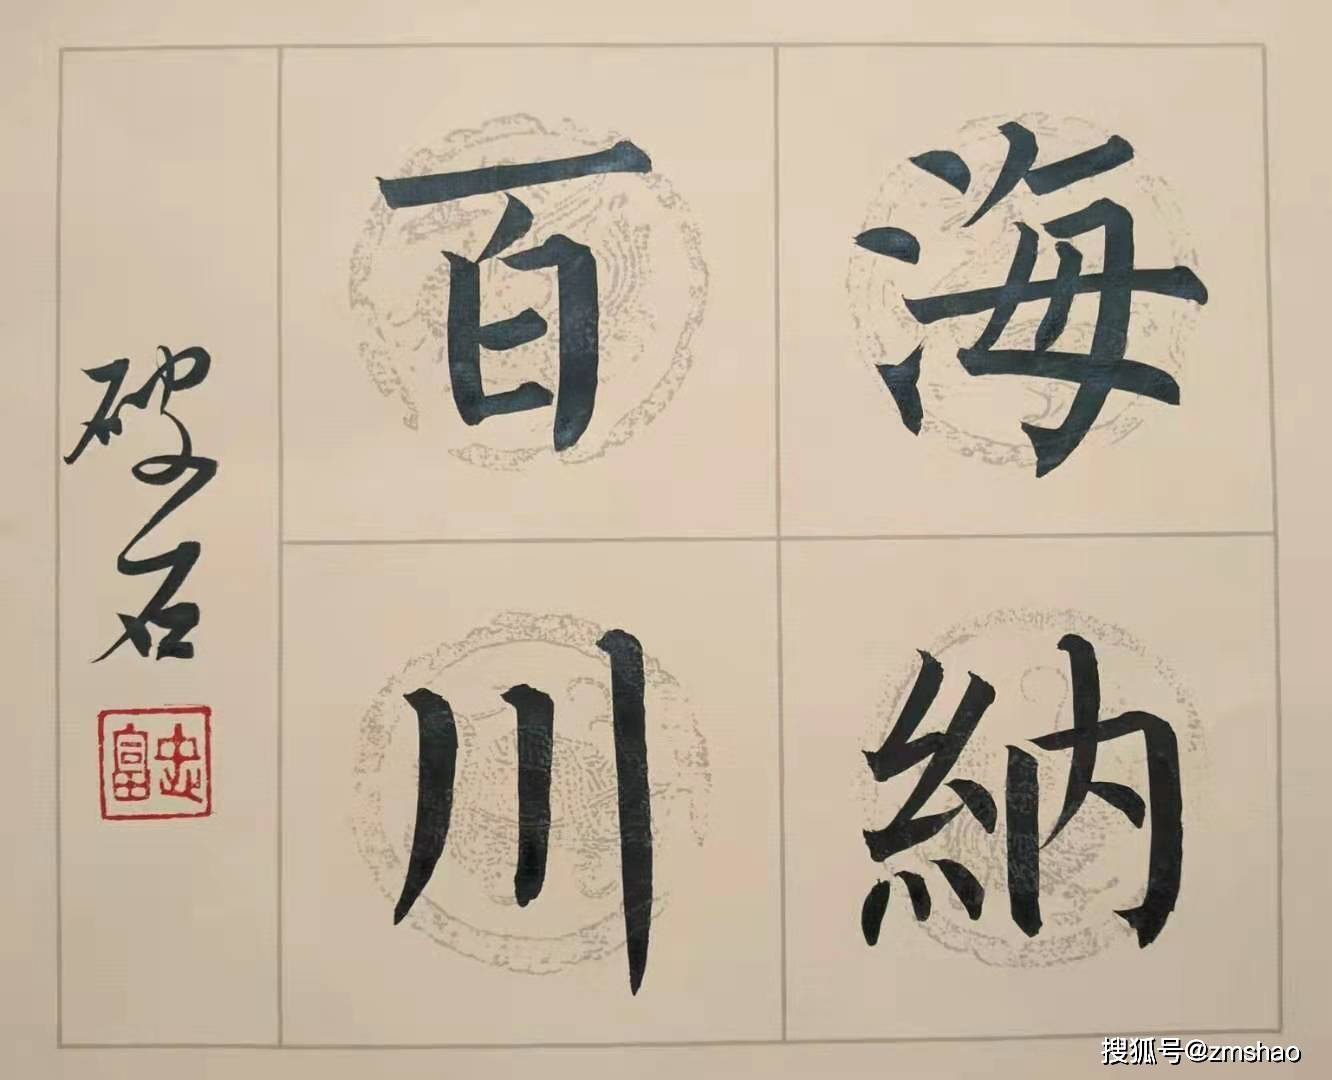 海納
百川
破石
忠富
搜狐号@zmshao